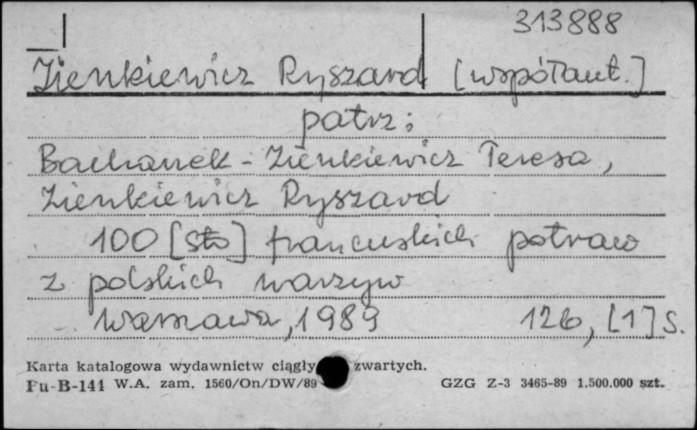 313888
Zienkiewicz Ryszard [współaut.]
patrz:
Bachanek-Zienkiewicz Teresa,
Zienkiewicz Ryszard
100 [sto] francuskich potraw
z polskich warzyw
Warszawa, 1989 126, [1] s.
Karta katalogowa wydawnictw ciągły zwartych.
Pu-B-141 W.A. zam. 1560/On/DW/89 GZG Z-3 3465-89 1.500.000 szt.